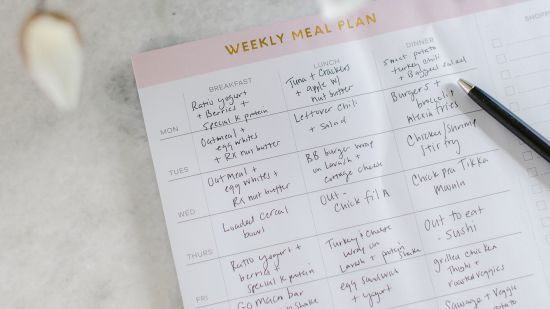 WEEKLY MEAL PLAN
SHOPP
BREAKFAST
LUNCH
DINNER
MON
Ratio yogurt
+ Berries +
special K protein
Tuna + Crackers
+ apple w/
nut butter
sweet potato
turkey chili
+ Bagged salad
TUES
Oatmeal +
egg whites
+ RX nut butter
Leftover chili
+ salad
Burgers +
broccoli +
Alexia fries
WED
Oatmeal +
egg whites +
RX nut butter
BB burger wrap
on Lavash +
cottage cheese
Chicken/Shrimp
stir fry
THURS
Loaded cereal
bowl
OUT -
Chick fil A
Chick pea Tikka
Masala
FRI
Ratio yogurt +
berries +
special K protein
Turkey + Cheese
wrap on
Lavash + protein
shake
Out to eat
- Sushi
GoMacro bar
shake
egg sandwich
+ yogurt
grilled chicken
Thighs +
roasted veggies
Sausage + veggie
potato